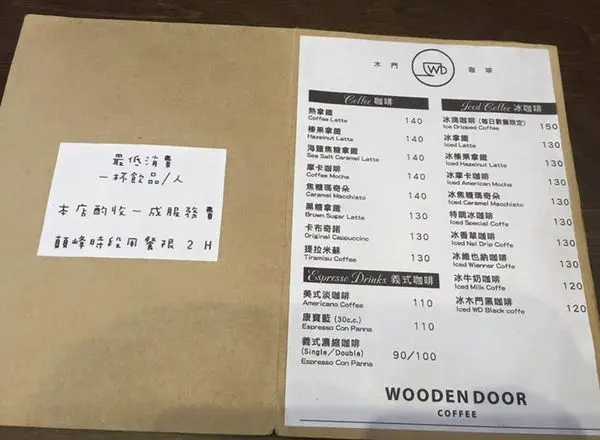 最低消費
一杯飲品/人
本店酌收一成服務費
顛峰時段用餐限 2H
木門 WD 咖啡
Coffee 咖啡
熱拿鐵 140
Coffee Latte
榛果拿鐵 140
Hazelnut Latte
海鹽焦糖拿鐵 140
Sea Salt Caramel Latte
摩卡咖啡 140
Coffee Mocha
焦糖瑪奇朵 140
Caramel Macchiato
黑糖拿鐵 130
Brown Sugar Latte
卡布奇諾 130
Original Cappuccino
提拉米蘇 130
Tiramisu Coffee
Espresso Drinks 義式咖啡
美式淡咖啡 110
Americano Coffee
康寶藍 (30c.c.) 110
Espresso Con Panna
義式濃縮咖啡
(Single/Double) 90/100
Espresso Con Panna
Iced Coffee 冰咖啡
冰滴咖啡 (每日數量限定) 150
Ice Dripped Coffee
冰拿鐵 130
Iced Latte
冰榛果拿鐵 130
Iced Hazelnut Latte
冰摩卡咖啡 130
Iced American Mocha
冰焦糖瑪奇朵 130
Iced Caramel Macchiato
特調冰咖啡 130
Iced Special Coffee
冰香草咖啡 130
Iced Nel Drip Coffee
冰維也納咖啡 130
Iced Wienner Coffee
冰牛奶咖啡 120
Iced Milk Coffee
冰木門黑咖啡 120
Iced WD Black coffe
WOODEN DOOR
COFFEE